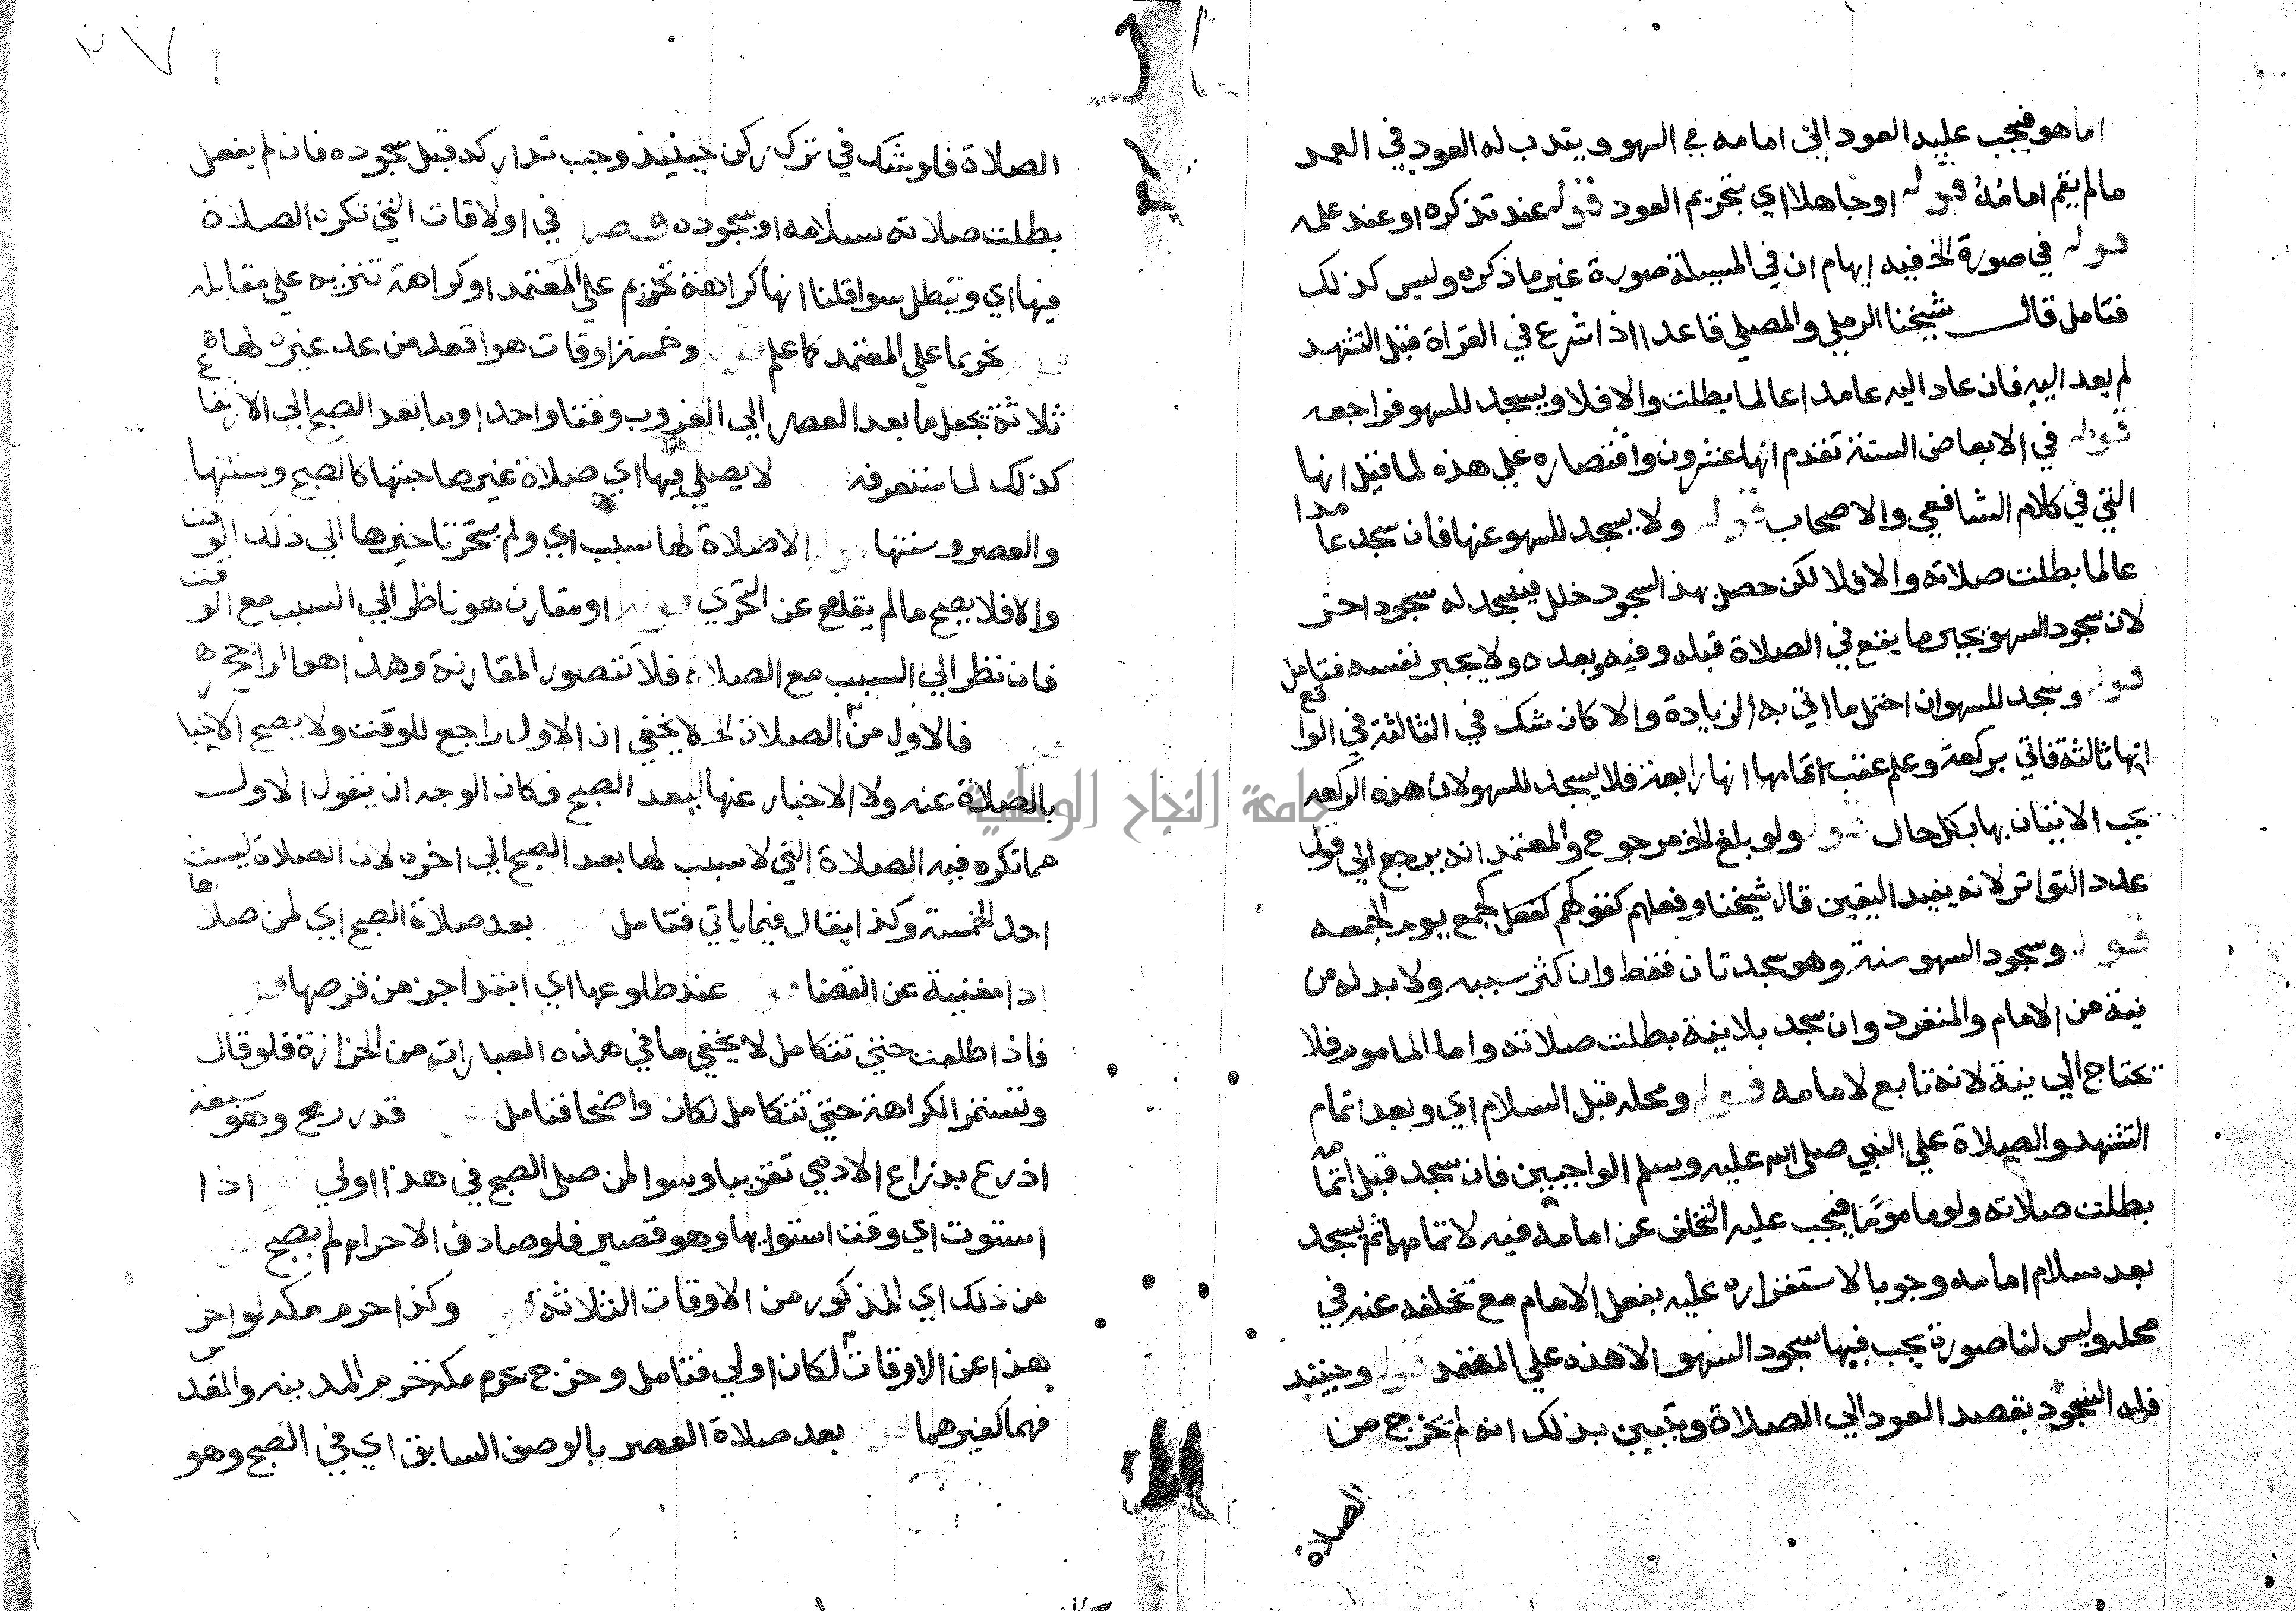 اما هو فيجب عليه العود الى امامه في السهو ويندب له العود في العمد
مالم يقم امامه قوله او جاهلا اي بتحريم العود قوله عند تذكره او عند علمه
قوله في صورة الخ فيه ايهام ان في المسيلة صورة غير ما ذكره وليس كذلك
فتامل قال شيخنا الرملي والمصلي قاعدا اذا شرع في القراة قبل التشهد
لم يعد اليه فان عاد اليه عامدا عالما بطلت والا فلا ويسجد للسهو فراجعه
قوله في الابعاض الستة تقدم انها عشرون واقتصاره على هذه لما قيل انها
التي في كلام الشافعي والاصحاب قوله ولا يسجد للسهو عنها فان سجد عامدا
عالما بطلت صلاته والا فلا لكن حصل بهذا السجود خلل فيسجد له سجود اخر
لان سجود السهو يجبر ما يقع في الصلاة قبله وفيه وبعده ولا يجبر نفسه فتامل
قوله وسجد للسهو ان احتمل ما اتي به الزيادة والا كان شك في الثالثة في الواقع
انها ثالثة فاتي بركعة وعلم عقب اتمامها انها رابعة فلا يسجد للسهو لان هذه الركعه
يجب الاتيان بها بكل حال قوله ولو بلغ الخ مرجوح والمعتمد انه يرجع الي قول
عدد التواتر لانه يفيد اليقين قال شيخنا وفعلهم كقولهم كفعل الجمع يوم الجمعه
قوله وسجود السهو سنة وهو سجدتان فقط وان كثر سببه ولا بد له من
نية من الامام والمنفرد وان سجد بلا نية بطلت صلاته واما الماموم فلا
يحتاج الي نية لانه تابع لامامه قوله ومحله قبل السلام اي وبعد اتمام
التشهد والصلاة علي النبي صلى الله عليه وسلم الواجبين فان سجد قبل اتمامه
بطلت صلاته ولو ماموما فيجب عليه التخلف عن امامه فيه لاتمامها ثم يسجد
بعد سلام امامه وجوبا لاستقراره عليه بفعل الامام مع تخلفه عنه في
محله وليس لنا صورة يجب فيها سجود السهو الا هذه علي المعتمد قوله وحينئذ
فله السجود بقصد العود الي الصلاة ويتبين بذلك انه لم يخرج من
الصلاة
الصلاة فلو شك في ترك ركن حينئذ وجب تداركه قبل سجوده فان لم يفعل
بطلت صلاته بسلامه او سجوده فصل في اولاقات التي تكره الصلاة
فيها اي وتبطل سوا قلنا انها كراهة تحريم علي المعتمد او كراهة تنزيه علي مقابله
تحريما علي المعتمد كما علم وخمسة اوقات هو اقعد من عد غيره لها
ثلاثة بجعل ما بعد العصر الي الغروب وقتا واحدا وما بعد الصبح الي الارتفاع
كذلك لما ستعرفه لا يصلي فيها اي صلاة غير صاحبتها كالصبح وسنتها
والعصر وسنتها قوله الا صلاة لها سبب اي ولم يتحر تاخيرها الي ذلك الوقت
والا فلا يصح مالم يقلع عن التحري قوله او مقارن هو ناظر الي السبب مع الوقت
فان نظر الي السبب مع الصلاة فلا تتصور المقارنة وهذا هو الراجح
فالاول من الصلاة الخ لا يخفي ان الاول راجع للوقت ولا يصح الاخبار
بالصلاة عنه ولا الاخبار عنها ببعد الصبح فكان الوجه ان يقول الاول
مما تكره فيه الصلاة التي لا سبب لها بعد الصبح الي اخره لان الصلاة ليست
احد الخمسة وكذا يقال فيما ياتي فتامل بعد صلاة الصبح اي لمن صلاها
ادا مغنية عن القضا عند طلوعها اي ابتدا جز من قرصها
فاذا طلعت حتي تتكامل لا يخفي ما في هذه العبارات من الحزازة فلو قال
وتستمر الكراهة حتي تتكامل لكان واضحا فتامل قدر رمح وهو سبعة
اذرع بذراع الادمي تقريبا وسوا لمن صلى الصبح في هذا اولي اذا
استوت اي وقت استوايها وهو قصير فلو صادف الاحرام لم يصح
من ذلك اي المذكور من الاوقات الثلاثة وكذا حرم مكه لو اخر
هذا عن الاوقات لكان اولي فتامل وخرج بحرم مكة حرم المدينه والمقدس
فهما كغيرهما بعد صلاة العصر بالوصف السابق اي في الصبح وهو
جامعة النجاح الوطنية